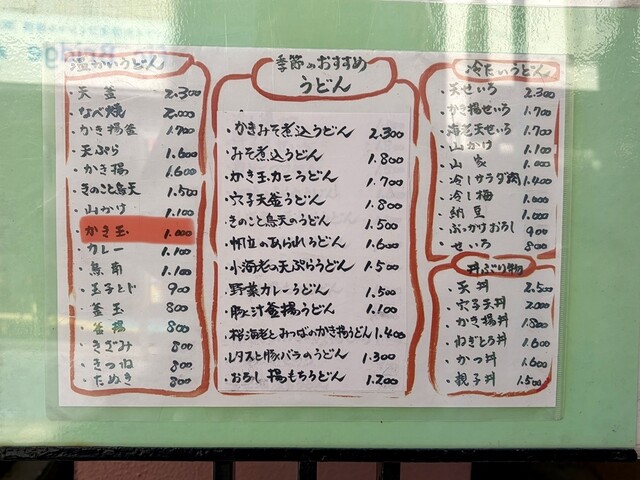 温かいうどん
・天釜 2.300
・なべ焼 2.000
・かき揚釜 1.700
・天ぷら 1.600
・かき揚 1.600
・きのこと鳥天 1.500
・山かけ 1.100
・かき玉 1.000
・カレー 1.100
・鳥南 1.100
・玉子とじ 900
・釜玉 800
・釜揚 800
・きざみ 800
・きつね 800
・たぬき 800
季節のおすすめ
うどん
・かきみそ煮込うどん 2.300
・みそ煮込うどん 1.800
・かき玉カニうどん 1.700
・穴子天釜うどん 1.800
・きのこと鳥天のうどん 1.500
・帆立のあられうどん 1.600
・小海老の天ぷらうどん 1.500
・野菜カレーうどん 1.500
・豚汁釜揚うどん 1.100
・桜海老とみつばのかき揚うどん 1.400
・レタスと豚バラのうどん 1.300
・おろし揚もちうどん 1.200
冷たいうどん
・天せいろ 2.300
・かき揚せいろ 1.700
・海老天せいろ 1.700
・山かけ 1.100
・山家 1.000
・冷しサラダ肉 1.400
・冷し梅 1.000
・納豆 1.000
・ぶっかけおろし 900
・せいろ 800
丼ぶり物
・天丼 2.500
・穴子天丼 2.000
・かき揚丼 1.800
・ねぎとろ丼 1.600
・かつ丼 1.600
・親子丼 1.500